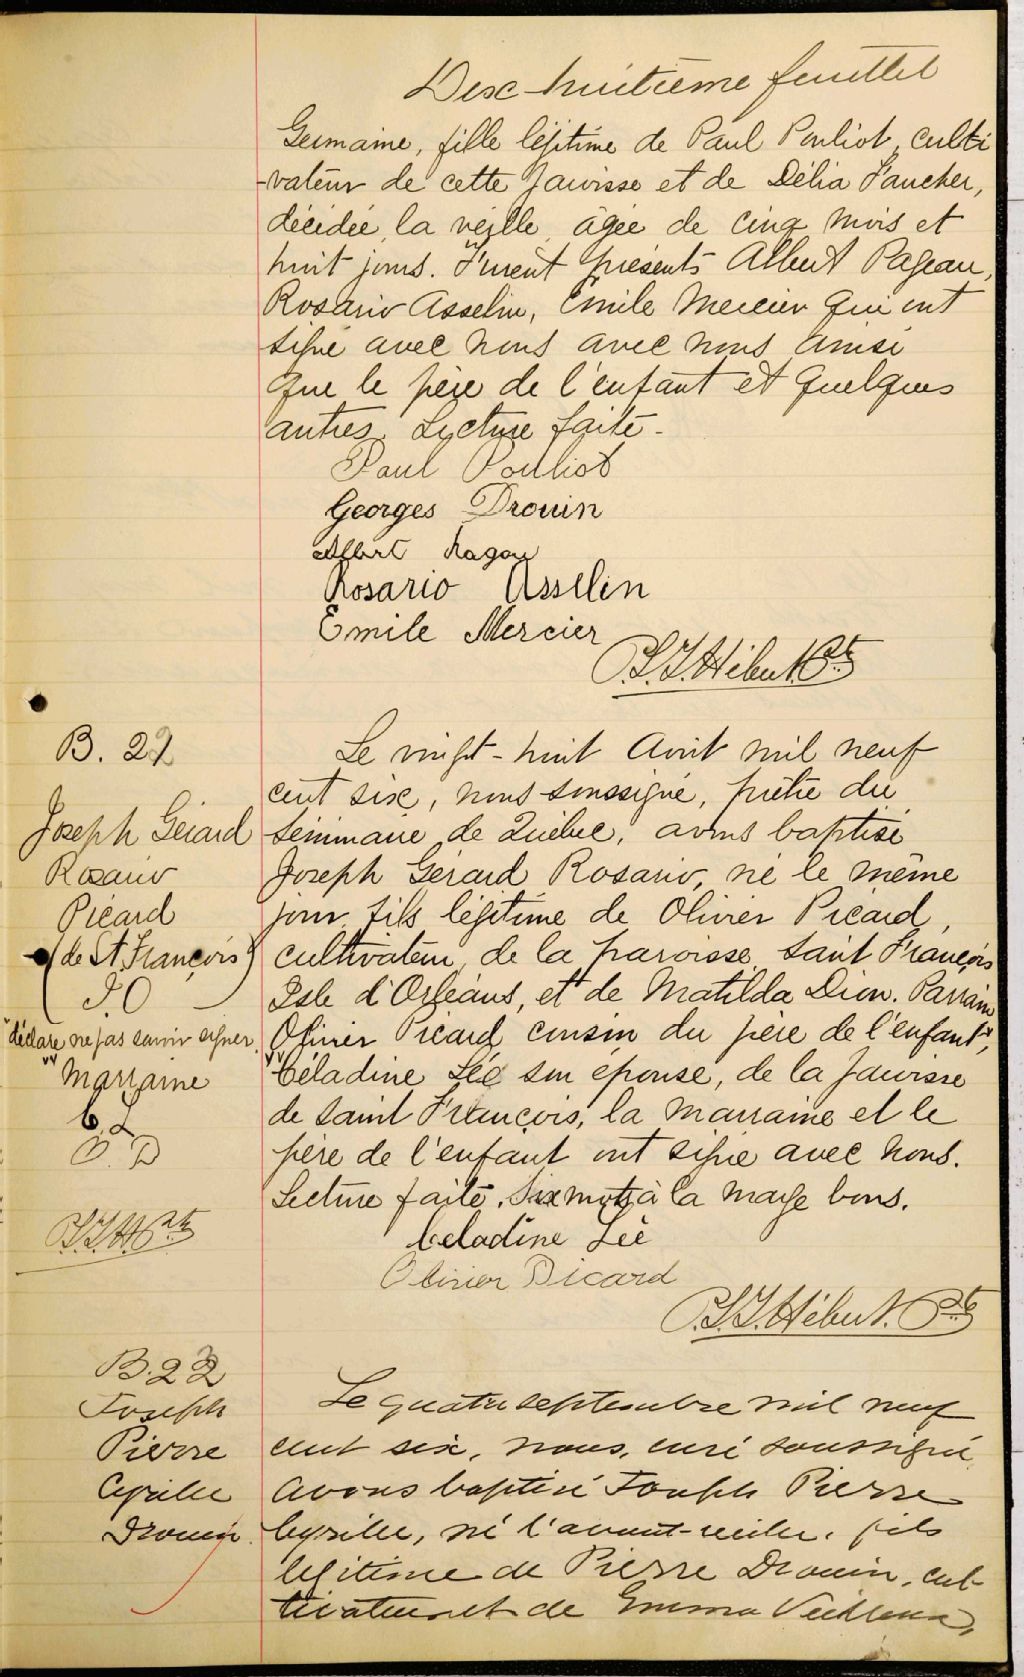 Dix-huitième feuillet
Germaine, fille légitime de Paul Pouliot, culti
-vateur de cette paroisse et de Délia Faucher,
décédée la veille âgée de cinq mois et
huit jours. Furent présents Albert Pageau,
Rosario Asselin, Émile Mercier qui ont
signé avec nous avec nous ainsi
que le père de l'enfant et quelques
autres. Lecture faite-
Paul Pouliot
Georges Drouin
Albert Pagau
Rosario Asselin
Emile Mercier
P.S.J. Hébert. Ptr
B. 22
Joseph Gérard
Rosario
Picard
(de St. François)
I.O
"déclare ne pas savoir signer
"" Marraine
C. L
O. P
Le vingt-huit Août mil neuf
cent six, nous soussigné, prêtre du
Séminaire de Québec, avons baptisé
Joseph Gérard Rosario, né le même
jour, fils légitime de Olivier Picard,
cultivateur, de la paroisse Saint François
Isle d'Orléans, et de Matilda Dion. Parrain
Olivier Picard cousin du père de l'enfant",
""Céladine Lée son épouse, de la paroisse
de Saint François, la marraine et le
père de l'enfant ont signé avec nous.
Lecture faite. Six mots à la marge bons.
Celadine Lée
Olivier Picard
P.S.J. Hébert. Ptr
B. 23
Joseph
Pierre
Cyrille
Drouin
Le quatre septembre mil neuf
cent six, nous, curé soussigné
avons baptisé Joseph Pierre
Cyrille, né l'avant-veille, fils
légitime de Pierre Drouin, cul-
tivateur et de Emma Veilleux,